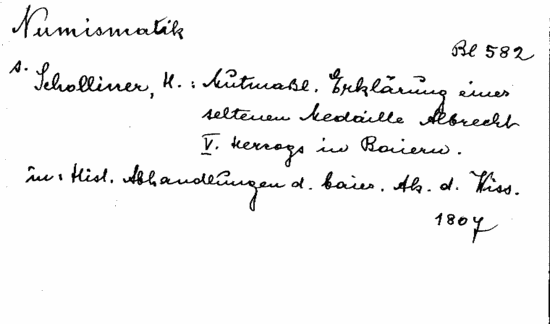 Numismatik
Bl 582
s. Scholliner, H.: Mutmaßl. Erklärung einer
seltenen Medaille Albrecht
V. Herzogs in Baiern.
in: Hist. Abhandlungen d. baier. Ak. d. Wiss.
1807